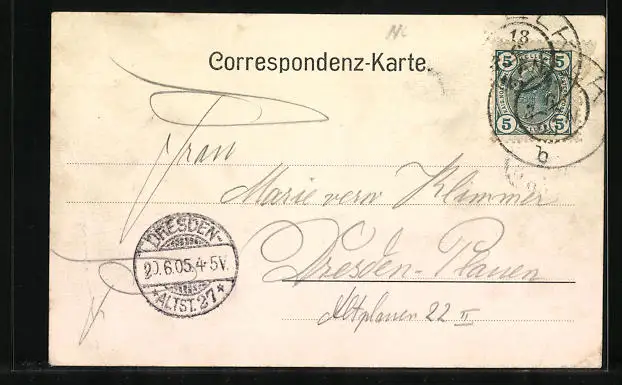 Correspondenz-Karte.
18
5 5
5 5
b
Frau
Marie verw Klimmer
Dresden-Plauen
Altplauen 22 II
DRESDEN-
20.6.05.4-5V.
*ALTST.27*